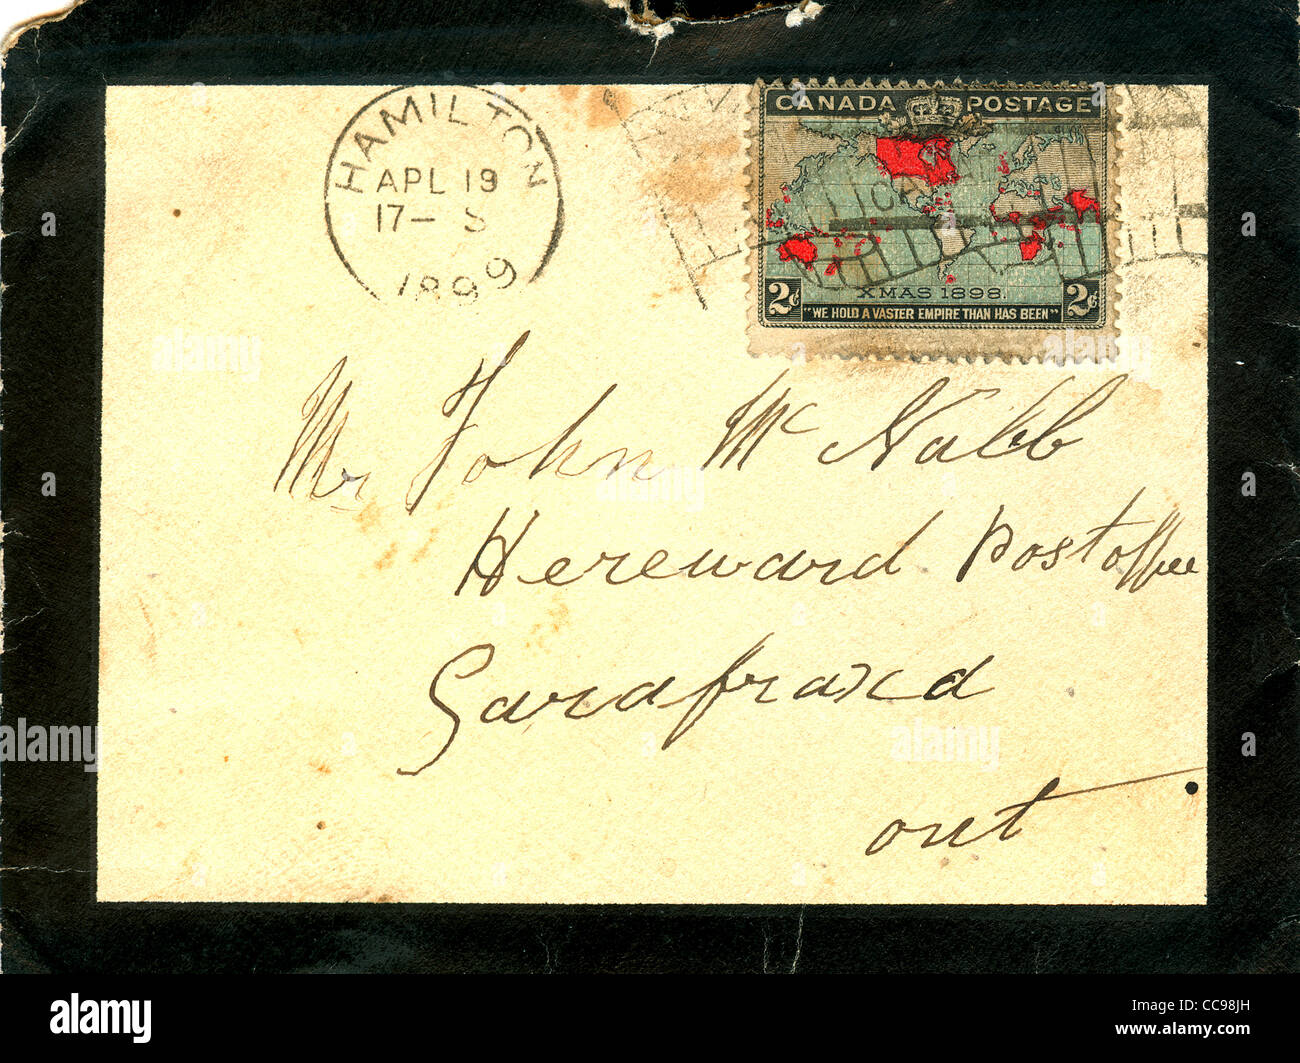 HAMILTON
APL 19
17–
1899
CANADA POSTAGE
XMAS 1898.
2c 2c
"WE HOLD A VASTER EMPIRE THAN HAS BEEN"
Mr John Mc Nabb
Hereward Postoffice
Garafraxa
ont
alamy
alamy
a a
a a
a a
alamy
Image ID: CC98JH
www.alamy.com